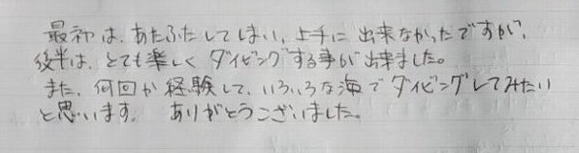 最初は、あたふたしてしまい、上手に出来なかったですが、
後半は、とても楽しくダイビングする事が出来ました。
また、何回か経験して、いろいろな海でダイビングしてみたい
と思います。ありがとうございました。